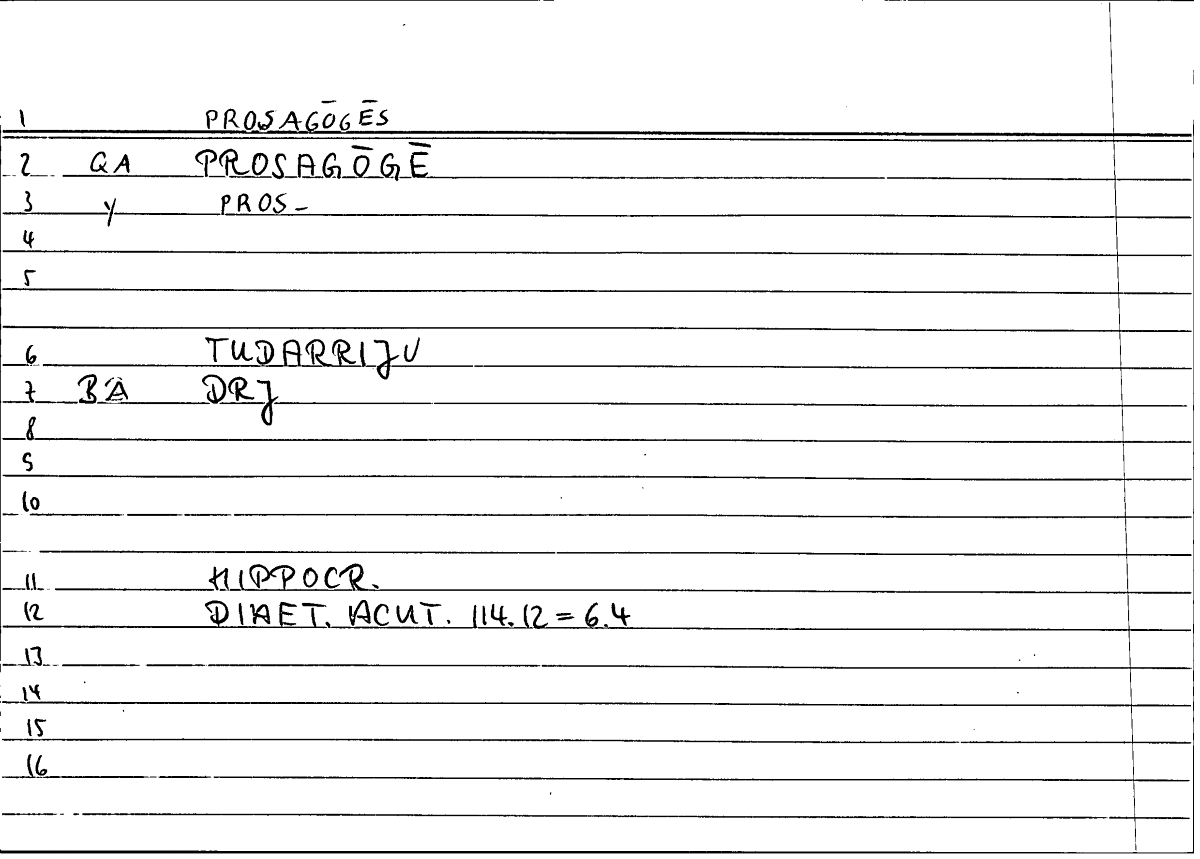 1 PROSAGŌGĒS
2 QA PROSAGŌGĒ
3 Y PROS-
4
5
6 TUDARRIJU
7 BA DRJ
8
9
10
11 HIPPOCR.
12 DIAET. ACUT. 114.12 = 6.4
13
14
15
16